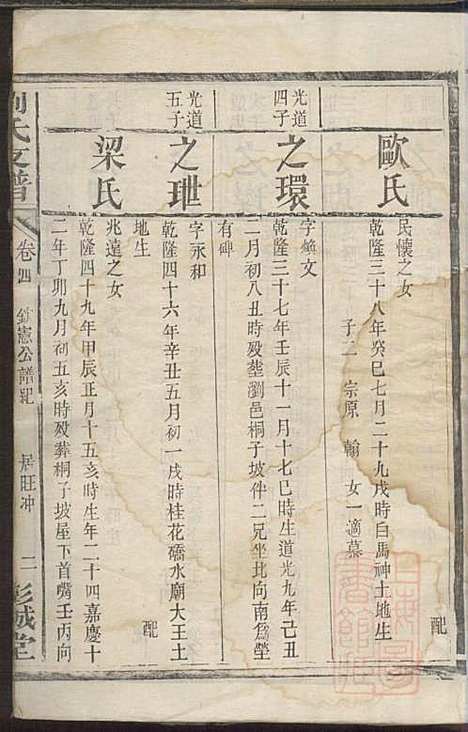 歐氏
民懷之女
乾隆三十八年癸巳七月二十九戌時白馬神土地生
子二 宗原 翰 女一適慕
配
光道四子
之環
字鎗文
乾隆三十七年壬辰十一月十七巳時生道光九年己丑
二月初八丑時殁塟瀏邑桐子坡伴二兄坐北向南爲塋
有碑
光道五子
之玴
字永和
乾隆四十六年辛丑五月初一戌時桂花礄水廟大王土
地生
配
梁氏
兆達之女
乾隆四十九年甲辰正月十五亥時生年二十四嘉慶十
二年丁卯九月初五亥時殁葬桐子坡屋下首嘴壬丙向
劉氏支譜
卷四
憲公譜紀
居旺冲
二
彭城堂